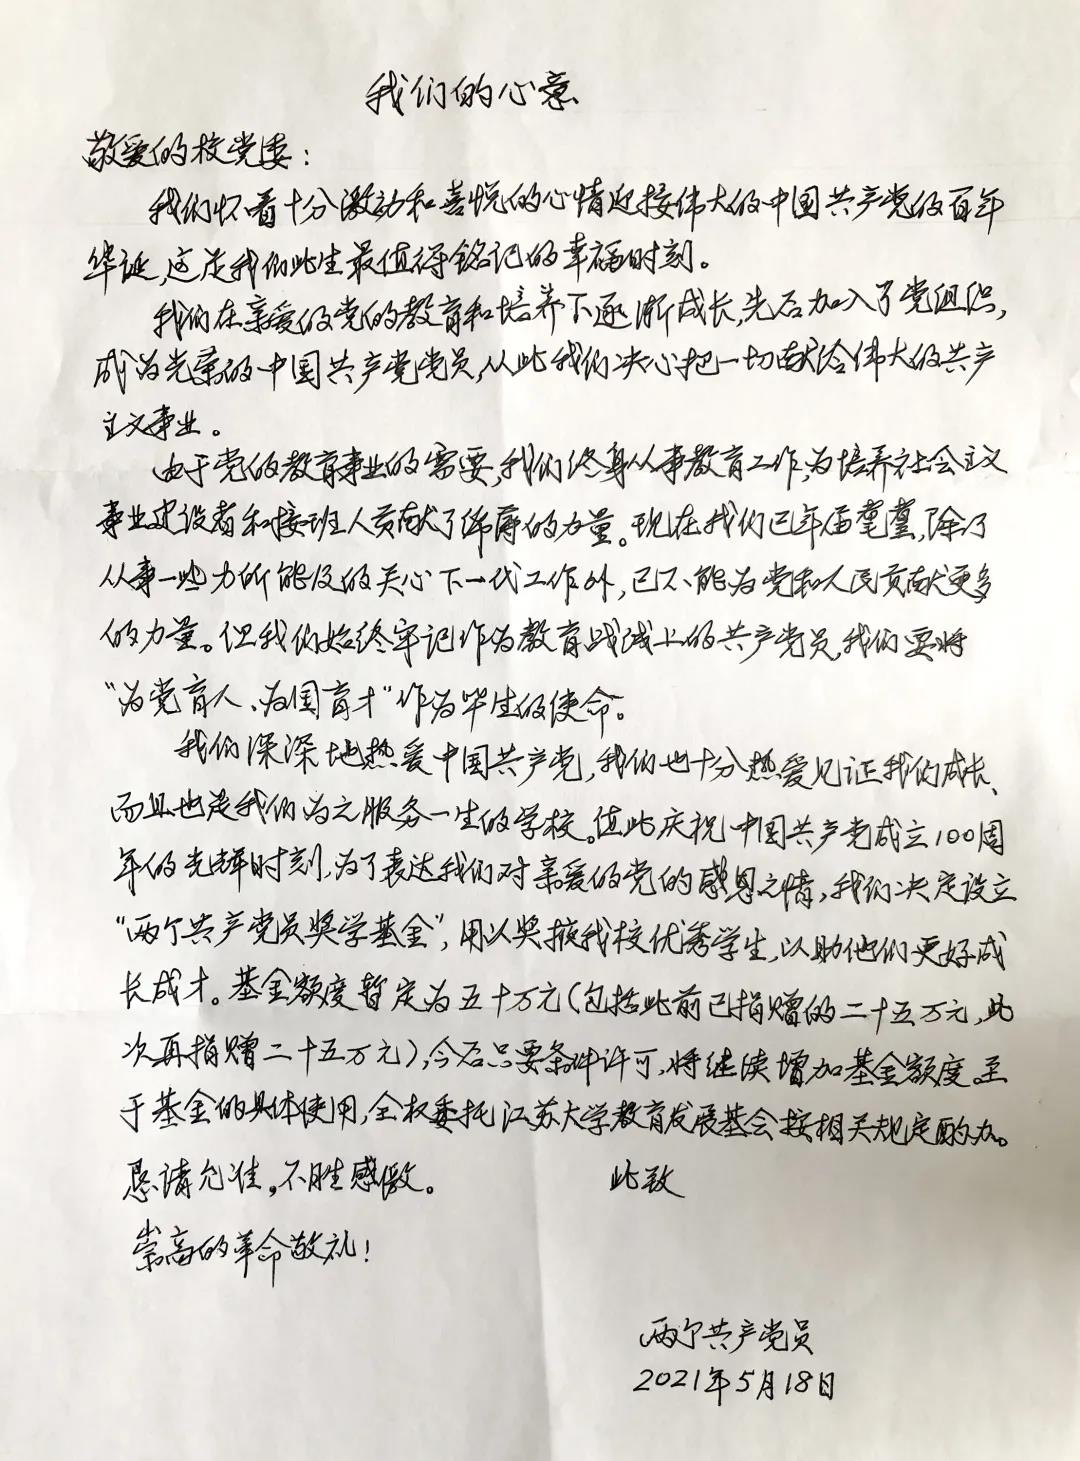 我们的心意
敬爱的校党委：
我们怀着十分激动和喜悦的心情迎接伟大的中国共产党的百年
华诞，这是我们此生最值得铭记的幸福时刻。
我们在亲爱的党的教育和培养下逐渐成长，先后加入了党组织，
成为光荣的中国共产党党员，从此我们决心把一切献给伟大的共产
主义事业。
由于党的教育事业的需要，我们终身从事教育工作，为培养社会主义
事业建设者和接班人贡献了绵薄的力量。现在我们已年届耄耋，除了
从事一些力所能及的关心下一代工作外，已不能为党和人民贡献更多
的力量。但我们始终牢记作为教育战线上的共产党员，我们要将
“为党育人、为国育才”作为毕生的使命。
我们深深地热爱中国共产党，我们也十分热爱见证我们成长、
而且也是我们为之服务一生的学校。值此庆祝中国共产党成立100周
年的光辉时刻，为了表达我们对亲爱的党的感恩之情，我们决定设立
“两个共产党员奖学基金”，用以奖掖我校优秀学生，以助他们更好成
长成才。基金额度暂定为五十万元（包括此前已捐赠的二十五万元，此
次再捐赠二十五万元），今后只要条件许可，将继续增加基金额度。至
于基金的具体使用，全权委托江苏大学教育发展基金会按相关规定酌办。
恳请允准，不胜感激。 此致
崇高的革命敬礼！
两个共产党员
2021年5月18日